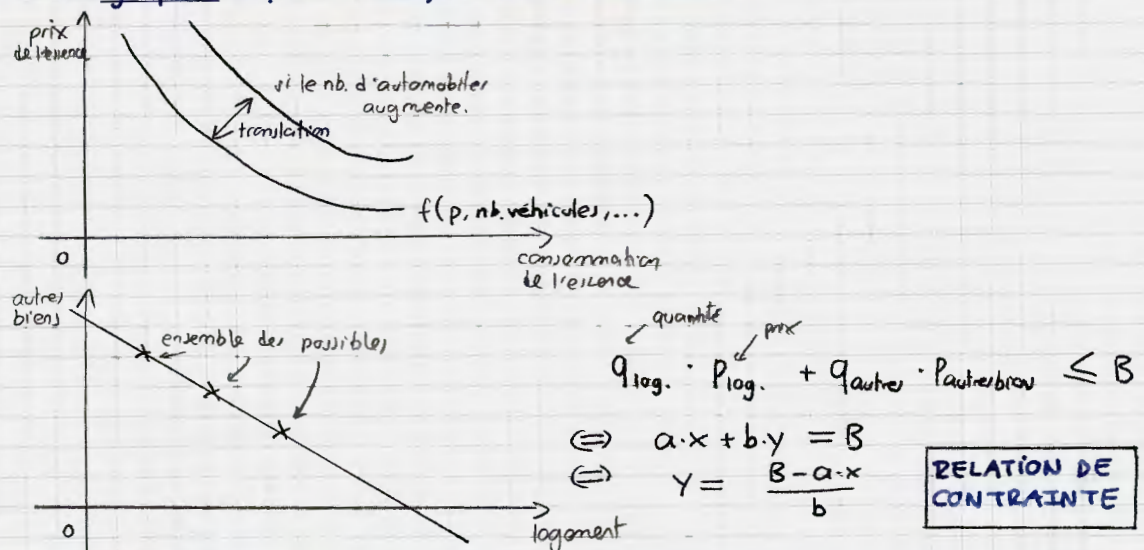 prix
de l'essence
si le nb. d'automobiles
augmente.
translation
f(p, nb. véhicules, ...)
0
consommation
de l'essence
autres
biens
ensemble des possibles
quantité
prix
q log. · p log. + q autres · p autres biens ≤ B
⇔ a·x + b·y = B
⇔ Y = (B - a·x) / b
RELATION DE
CONTRAINTE
0
logement